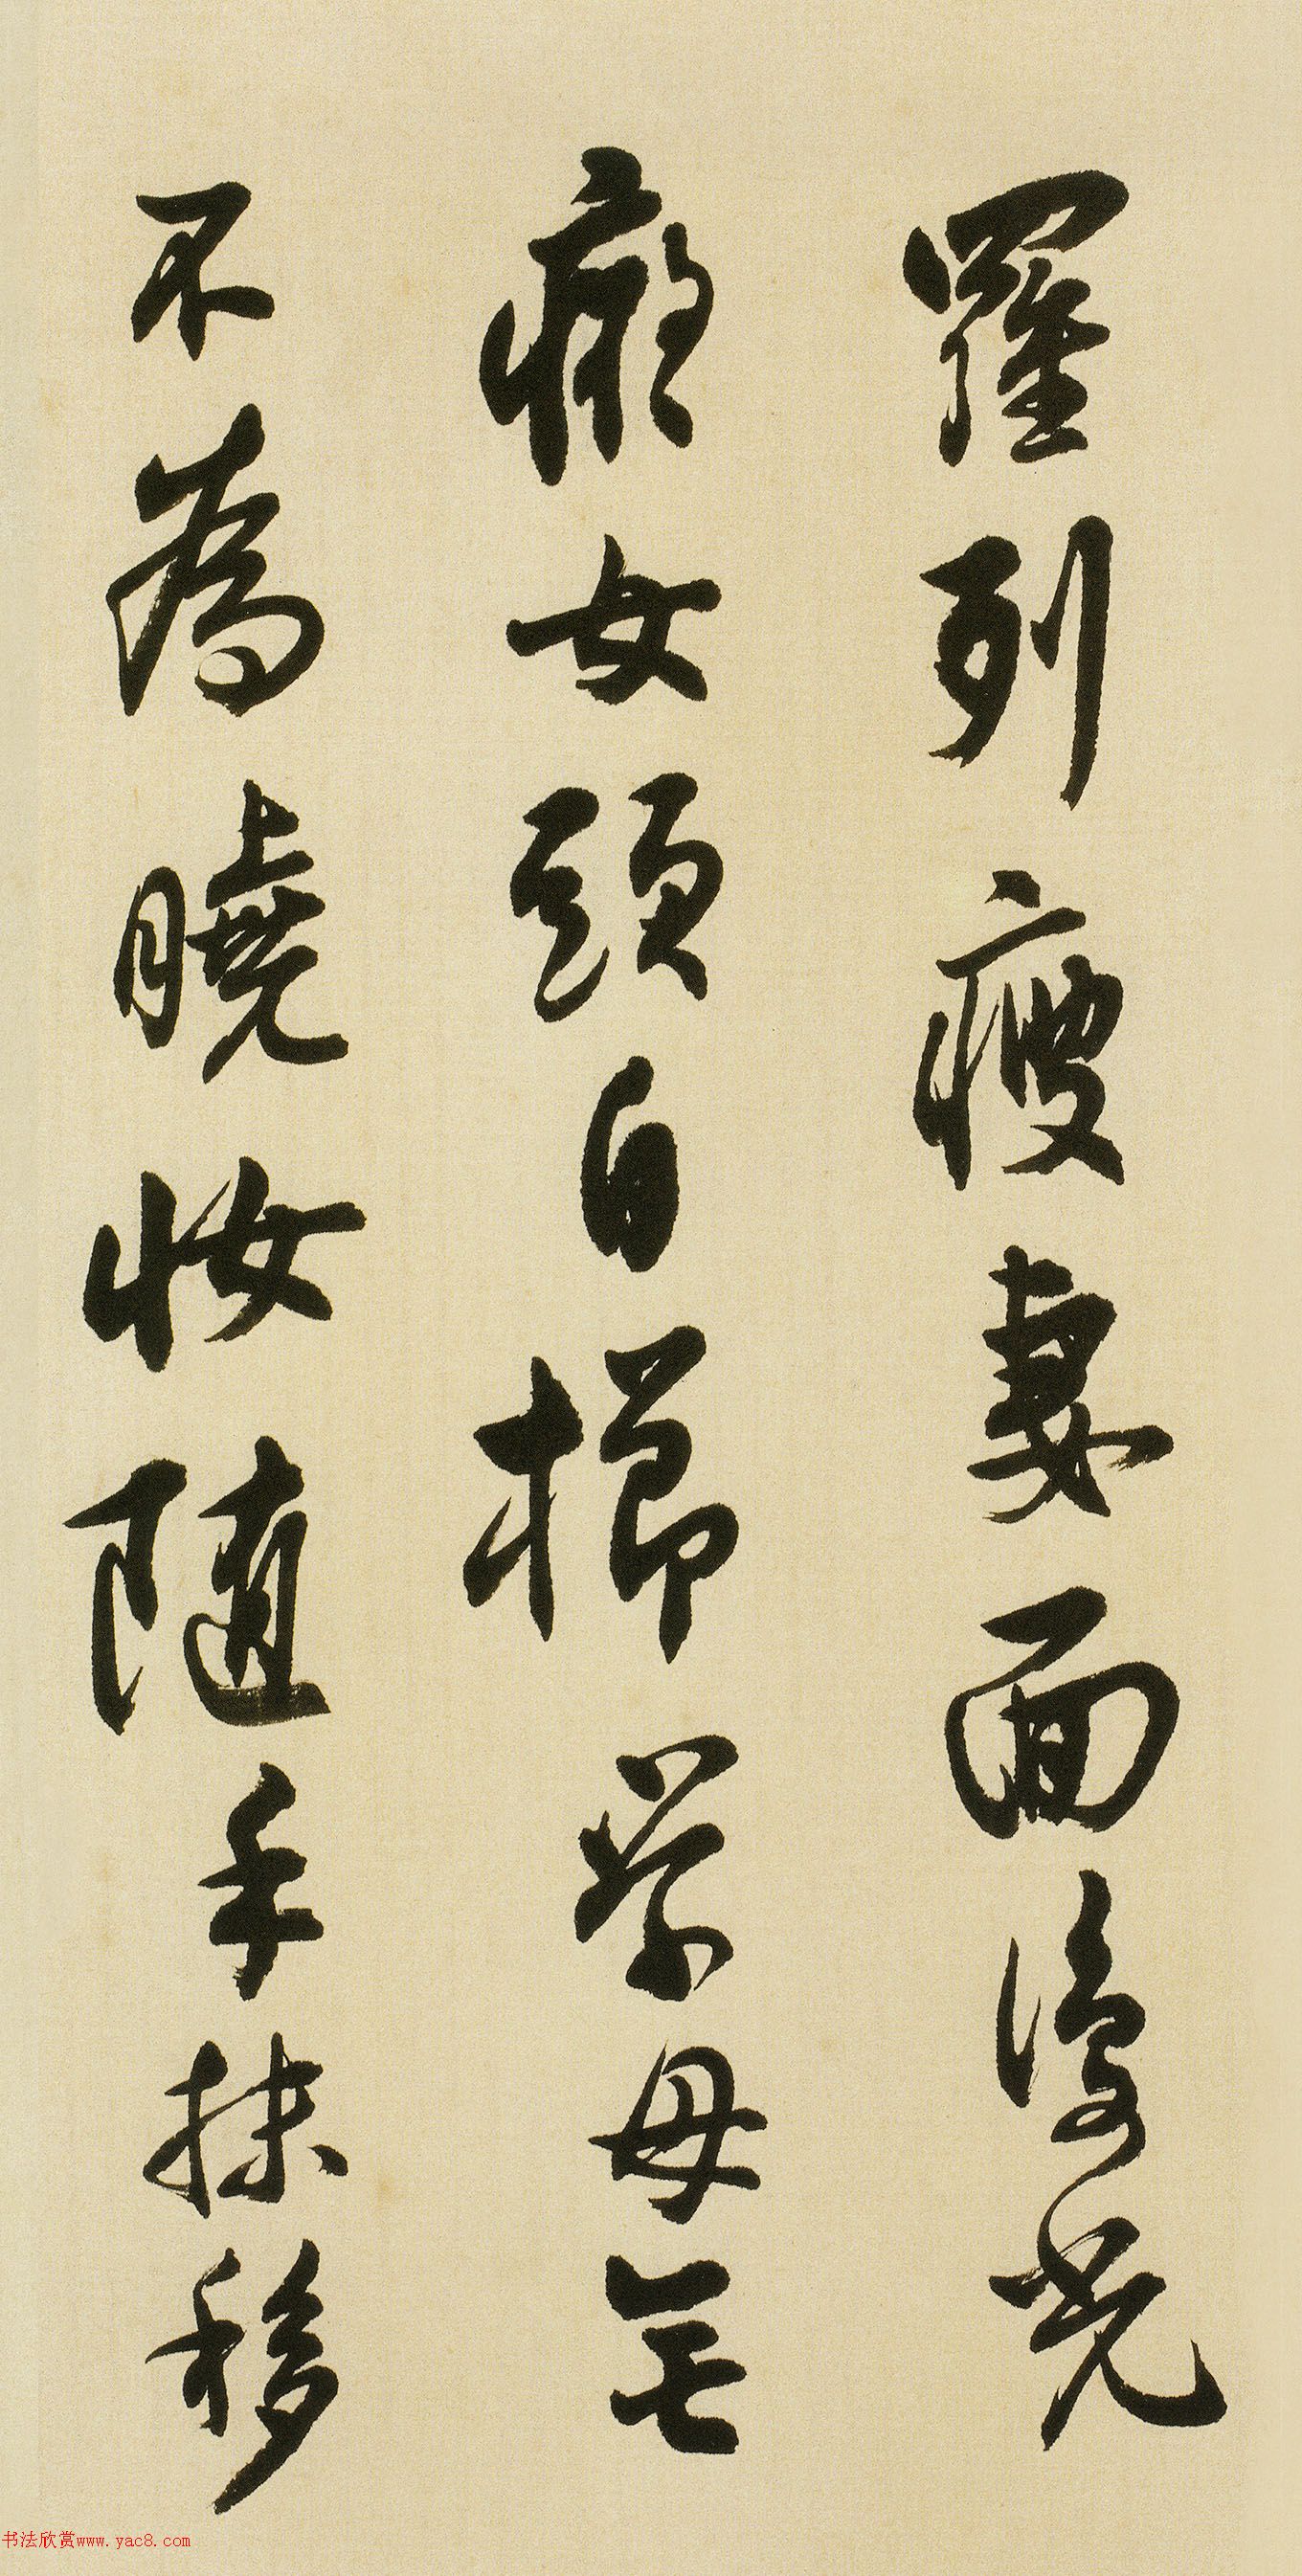 羅列瘦妻面復光
癡女頭自櫛學母無
不為曉妝隨手抹移
书法欣赏www.yac8.com